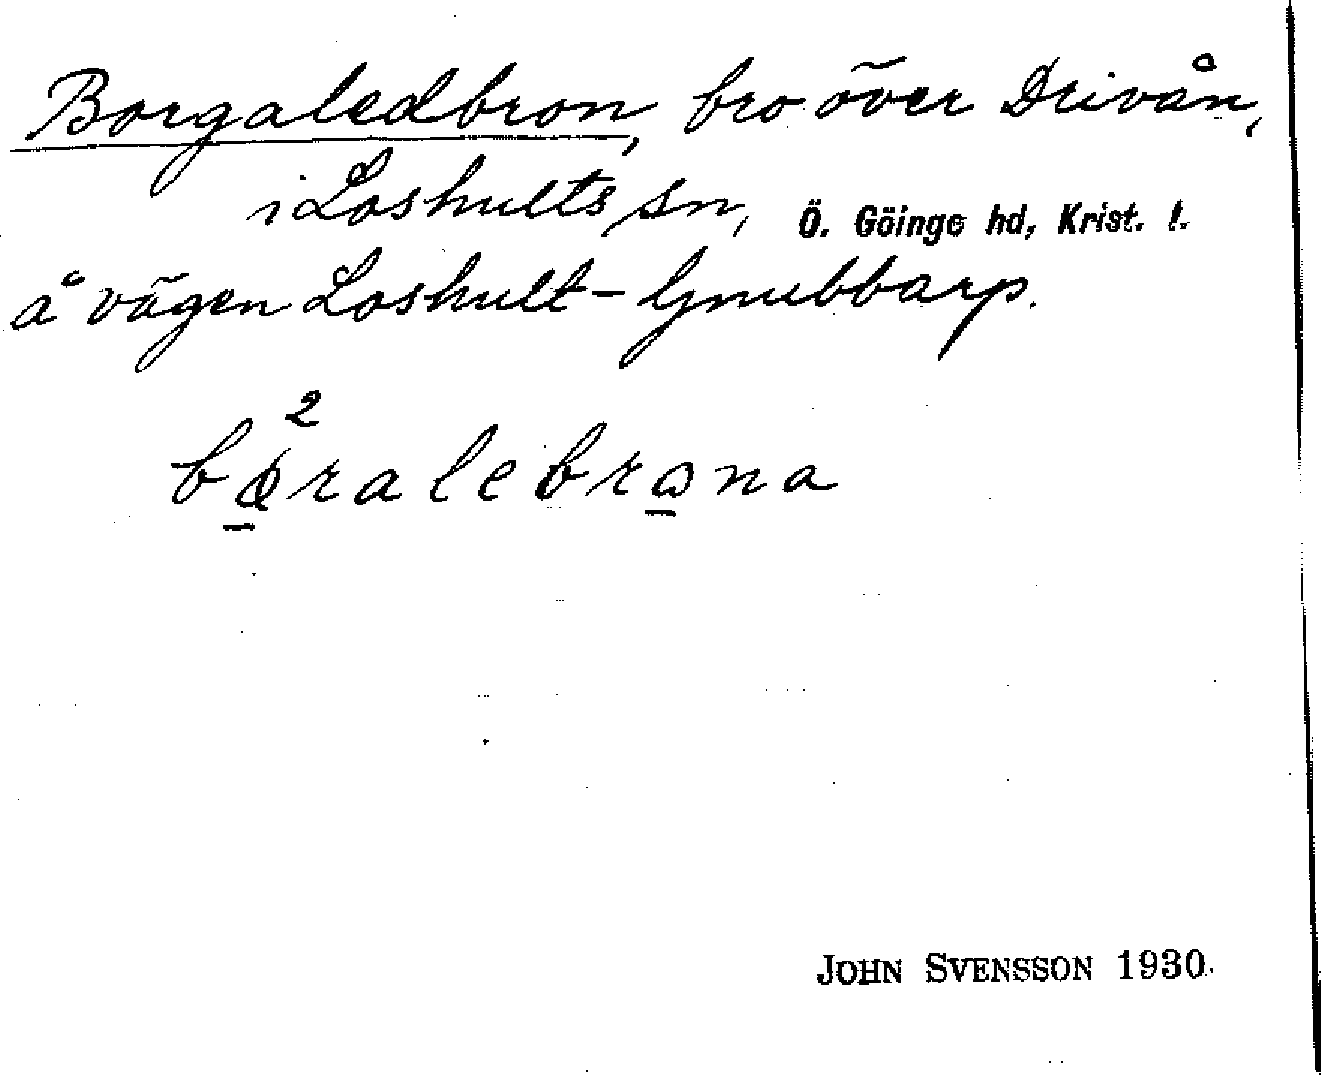 Borgaledbron, bro över Drivån,
i Loshults sn, Ö. Göinge hd, Krist. l.
å vägen Loshult - Gnubbarp.
2
John Svensson 1930.